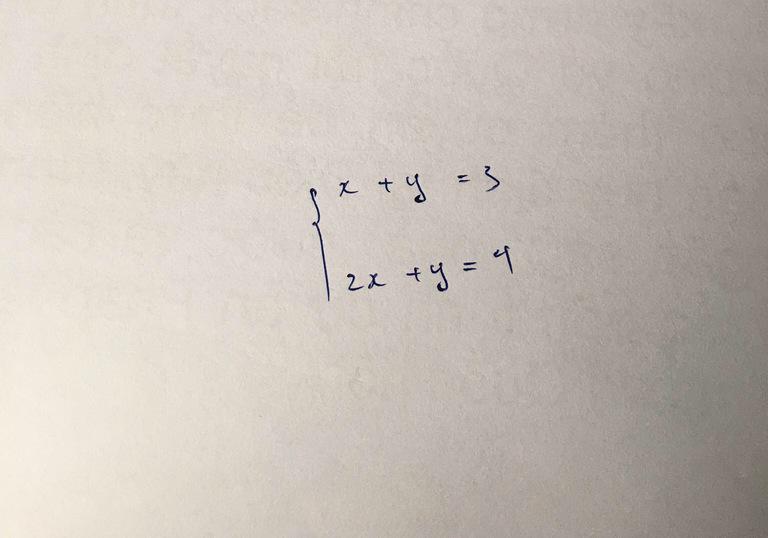 x + y = 3
2x + y = 4